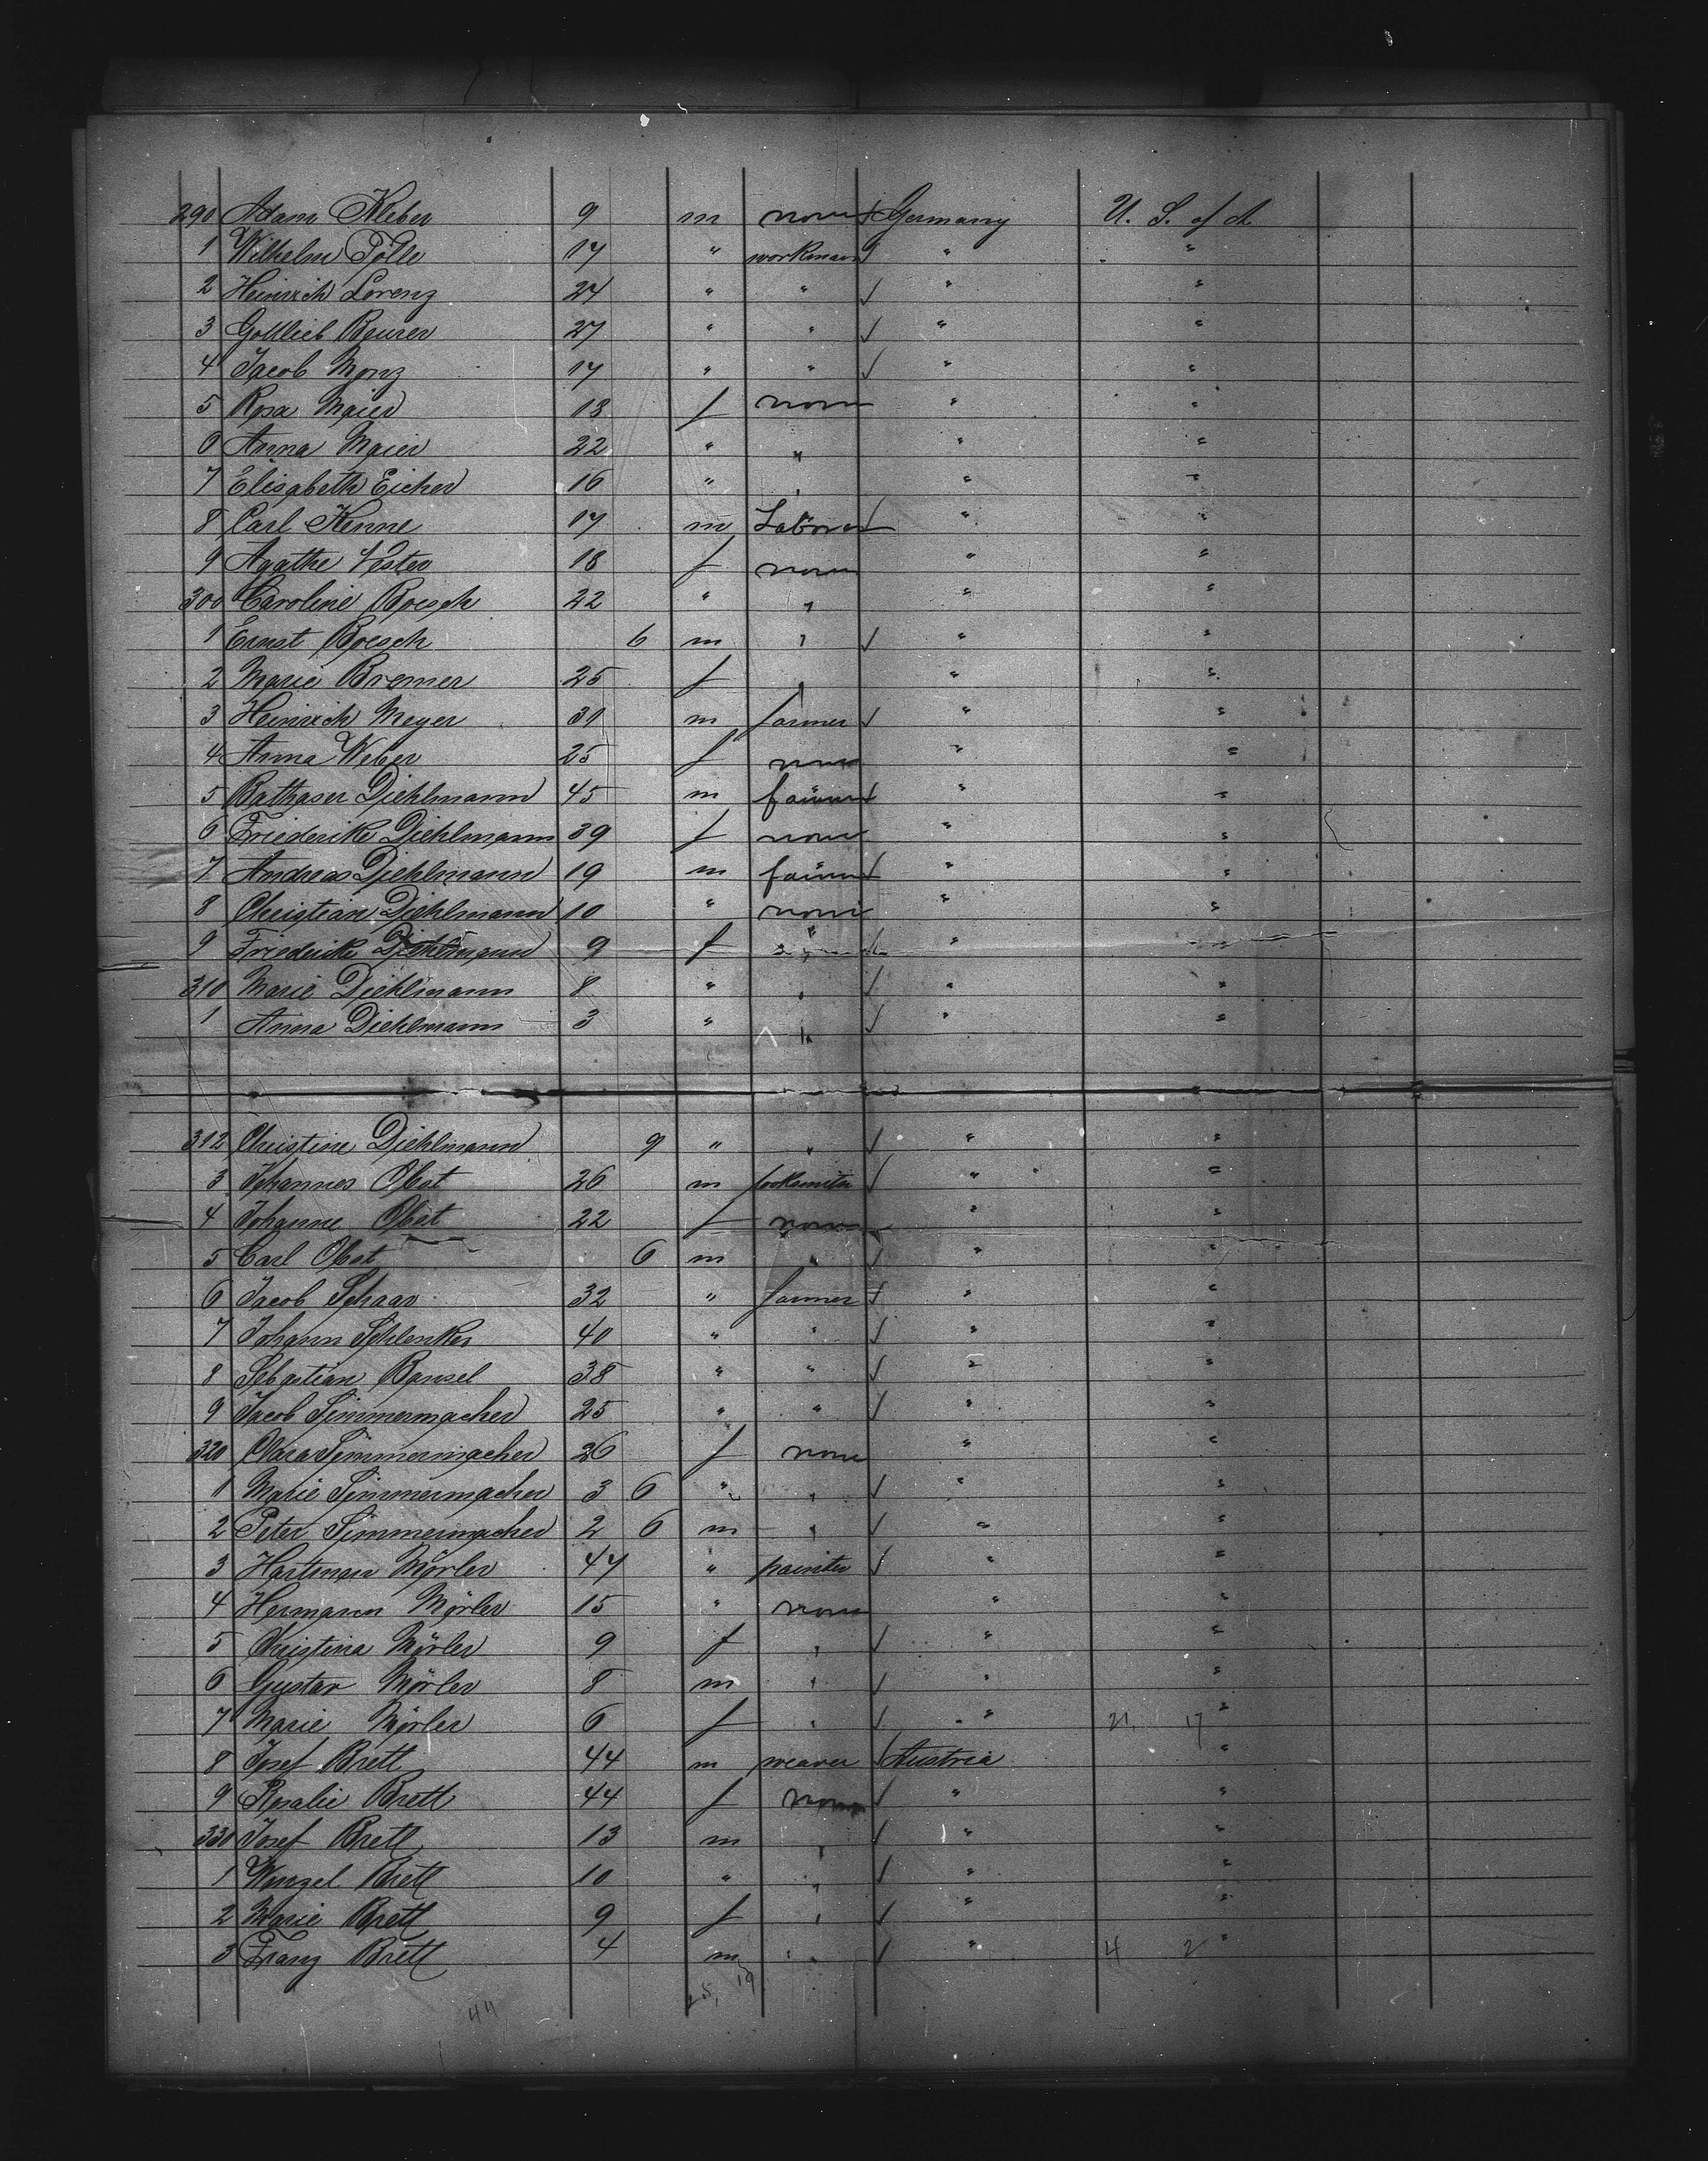 290 Adam Kleber 9 m none Germany U. S. of A
1 Wilhelm Tölle 17 " workman " "
2 Heinrich Lorenz 24 " " " "
3 Gottlieb Beurer 27 " " " "
4 Jacob Monz 17 " " " "
5 Rosa Maier 18 f none " "
6 Anna Maier 22 " " " "
7 Elisabeth Eicher 16 " " " "
8 Carl Kenne 17 m Labour " "
9 Agathe 18 f none " "
300 Caroline Boesch 22 " " " "
1 Ernst Boesch 6 m " " "
2 Marie Bremer 25 f " " "
3 Heinrich Meyer 31 m farmer " "
4 Anna Weber 25 f none " "
5 Balthaser Diehlmann 45 m farmer " "
6 Friederike Diehlmann 39 f none " "
7 Andreas Diehlmann 19 m farmer " "
8 Christian Diehlmann 10 " none " "
9 Friederike Diehlmann 9 f " " "
310 Marie Diehlmann 8 " " " "
1 Anna Diehlmann 3 " " " "
312 Christine Diehlmann 9 " " " "
3 Johannes Obst 26 m " "
4 Johanne Obst 22 f none " "
5 Carl Obst 6 m " " "
6 Jacob Schaar 32 " farmer " "
7 Johann Schlenker 40 " " " "
8 Sebastian Bansel 38 " " " "
9 Jacob Simmermacher 25 " " " "
320 Clara Simmermacher 26 f none " "
1 Marie Simmermacher 3 6 " " " "
2 Peter Simmermacher 2 6 m " " "
3 Hartman Mörler 44 " painter " "
4 Hermann Mörler 15 " none " "
5 Christina Mörler 9 f " " "
6 Gustav Mörler 8 m " " "
7 Marie Mörler 6 f " " 21 17 "
8 Josef Brett 44 m weaver Austria "
9 Rosalie Brett 44 f none " "
330 Josef Brett 13 m " " "
1 Wenzel Brett 10 " " " "
2 Marie Brett 9 f " " "
3 Franz Brett 4 m " " 4 2 "
44 25, 19